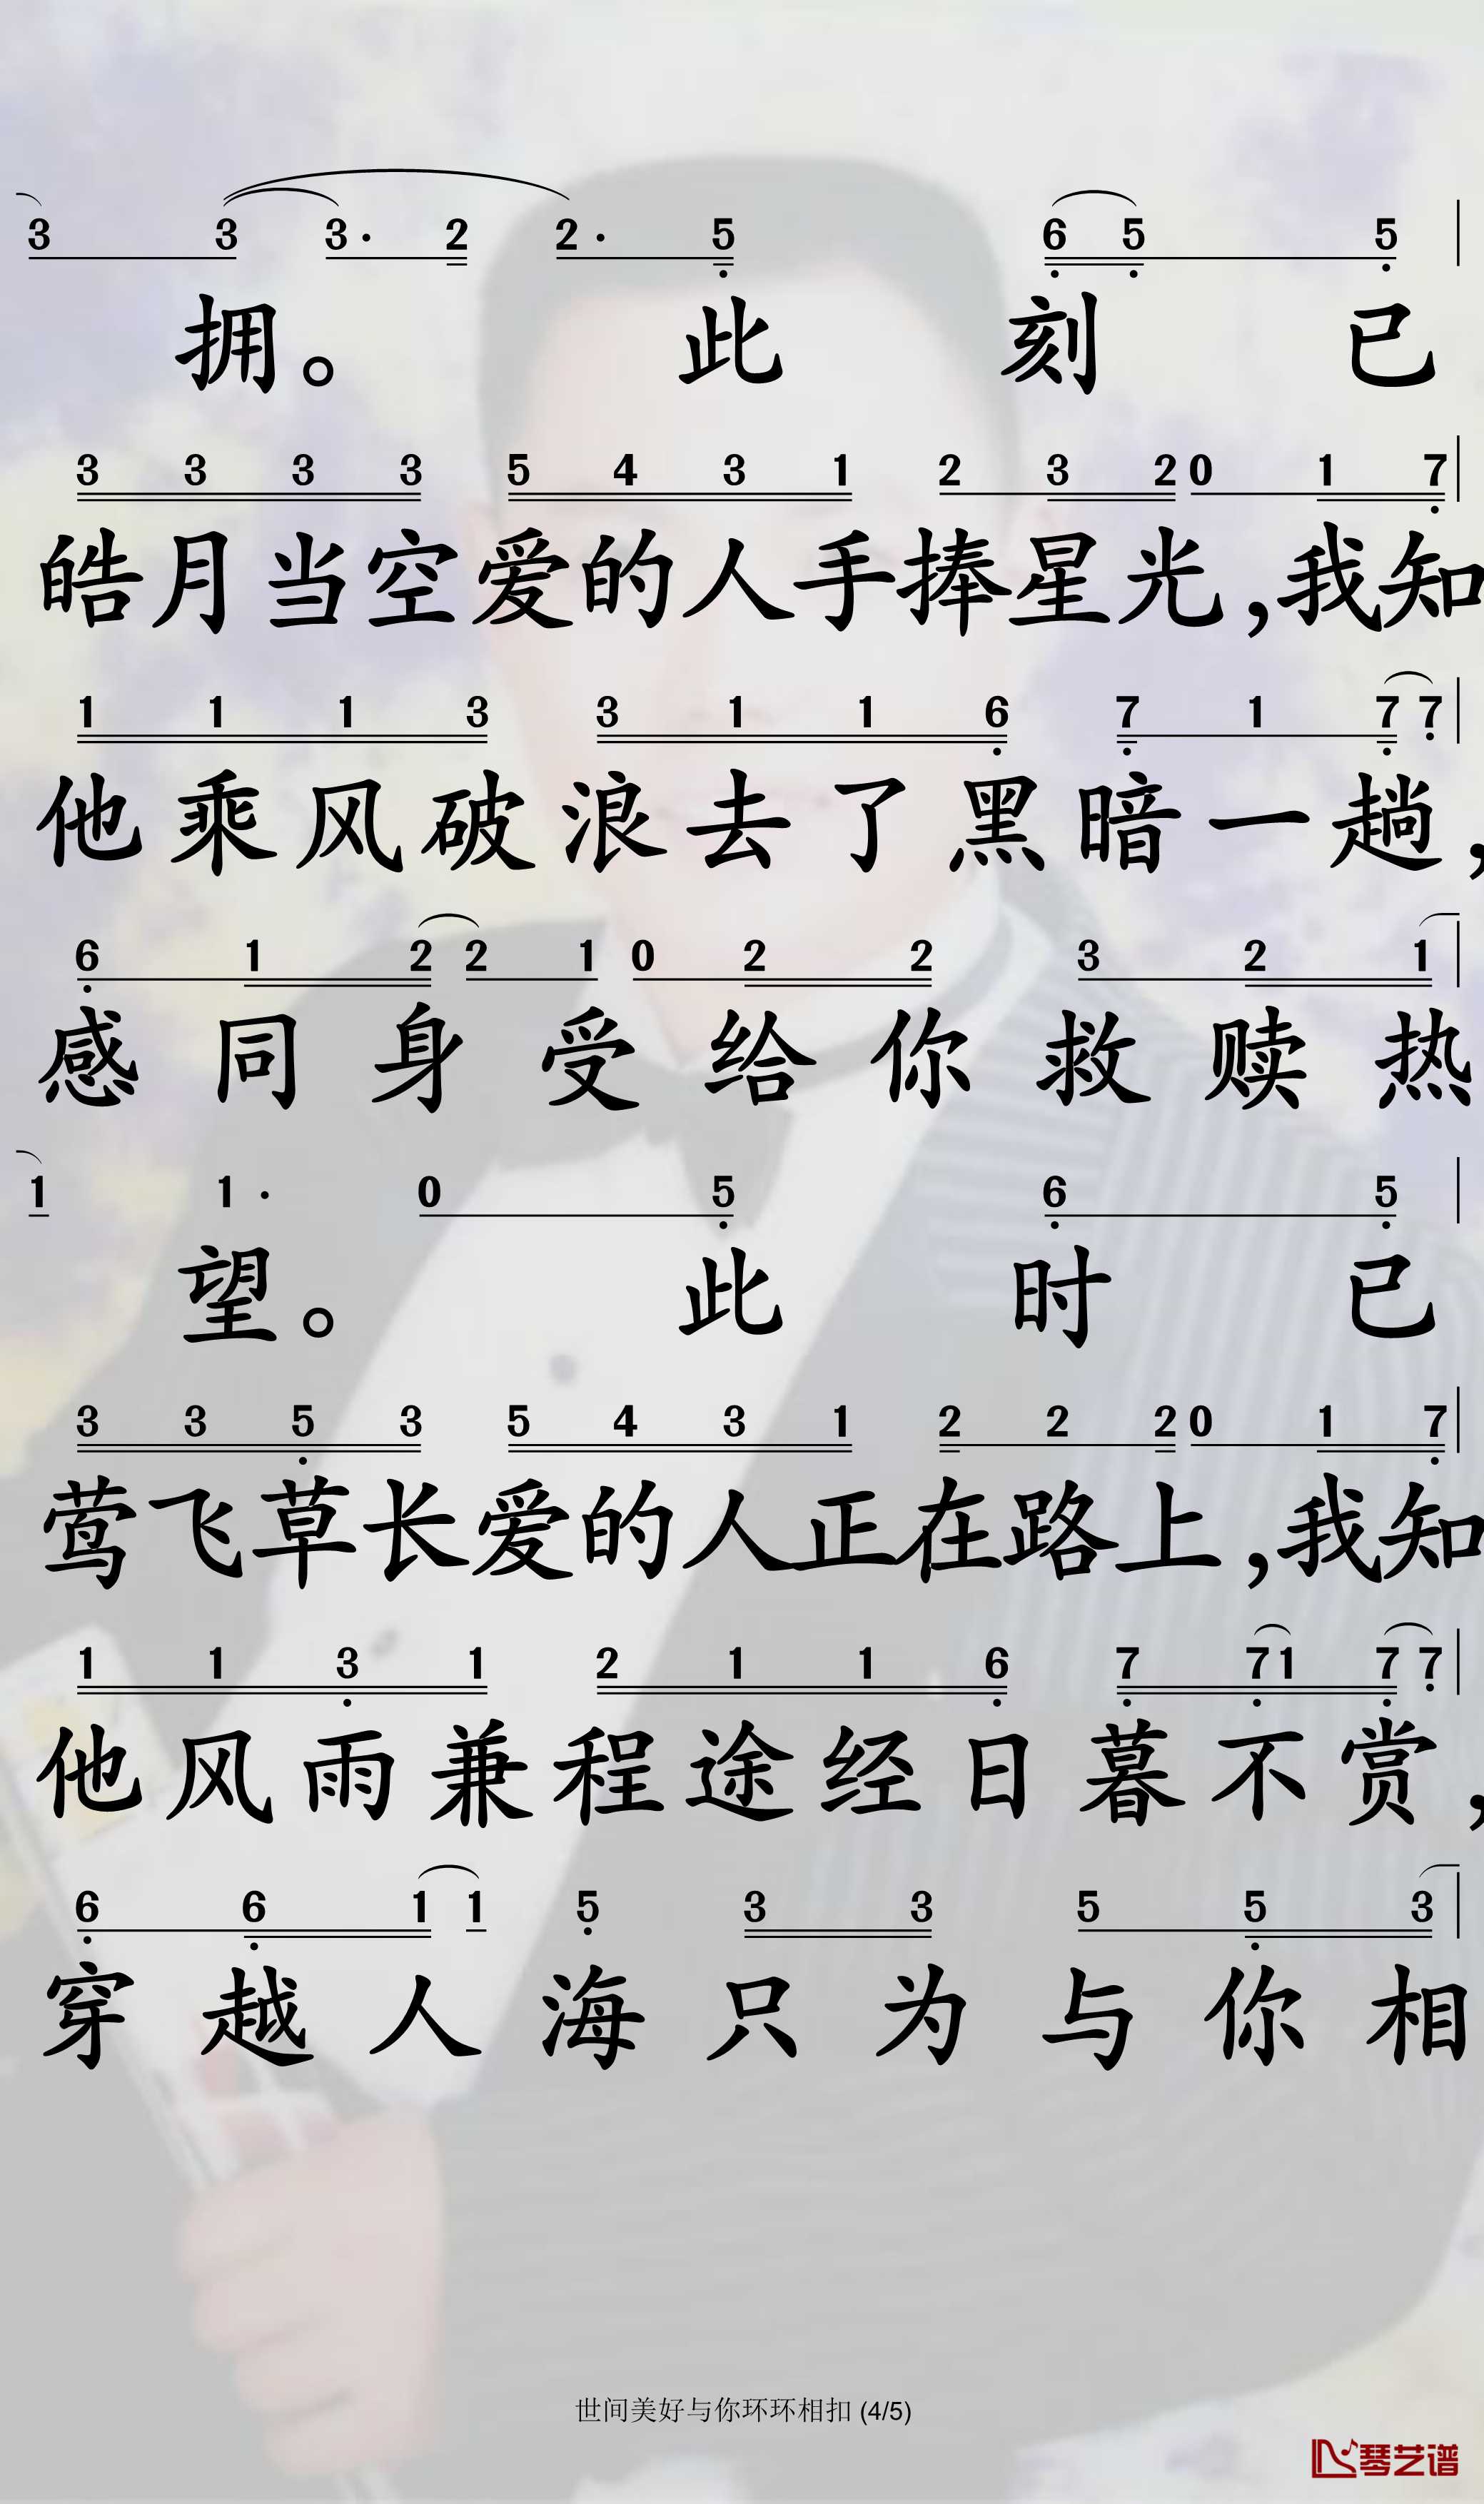 3 3 3· 2 2· 5 6 5 5
拥。 此 刻 已
3 3 3 3 5 4 3 1 2 3 2 0 1 7
皓月当空爱的人手捧星光,我知
1 1 1 3 3 1 1 6 7 1 7 7
他乘风破浪去了黑暗一趟,
6 1 2 2 1 0 2 2 3 2 1
感同身受给你救赎热
1 1· 0 5 6 5
望。 此 时 已
3 3 5 3 5 4 3 1 2 2 2 0 1 7
莺飞草长爱的人正在路上,我知
1 1 3 1 2 1 1 6 7 7 1 7 7
他风雨兼程途经日暮不赏,
6 6 1 1 5 3 3 5 5 3
穿越人海只为与你相
世间美好与你环环相扣 (4/5)
琴艺谱